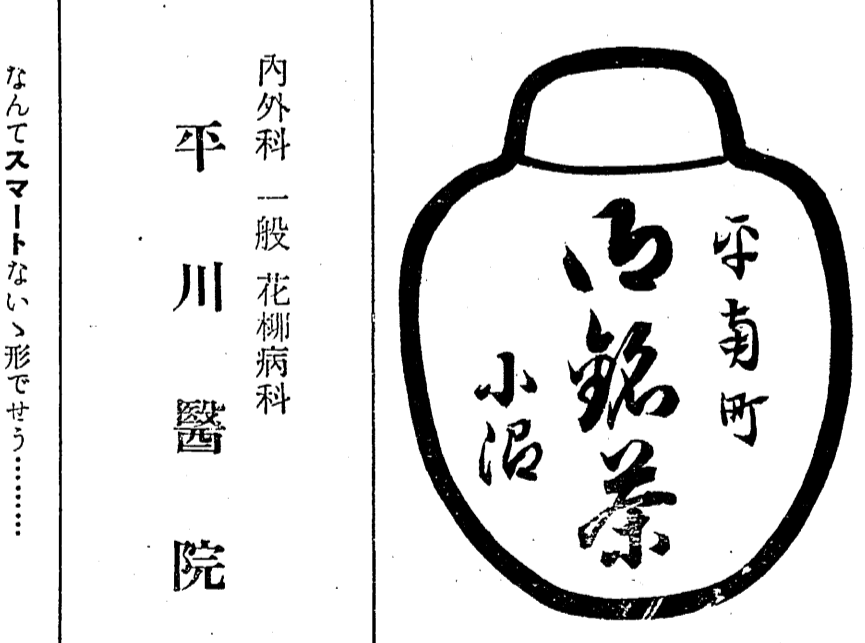 平南町
御銘茶
小沼
内外科 一般 花柳病科
平川醫院
なんてスマートないゝ形でせう………